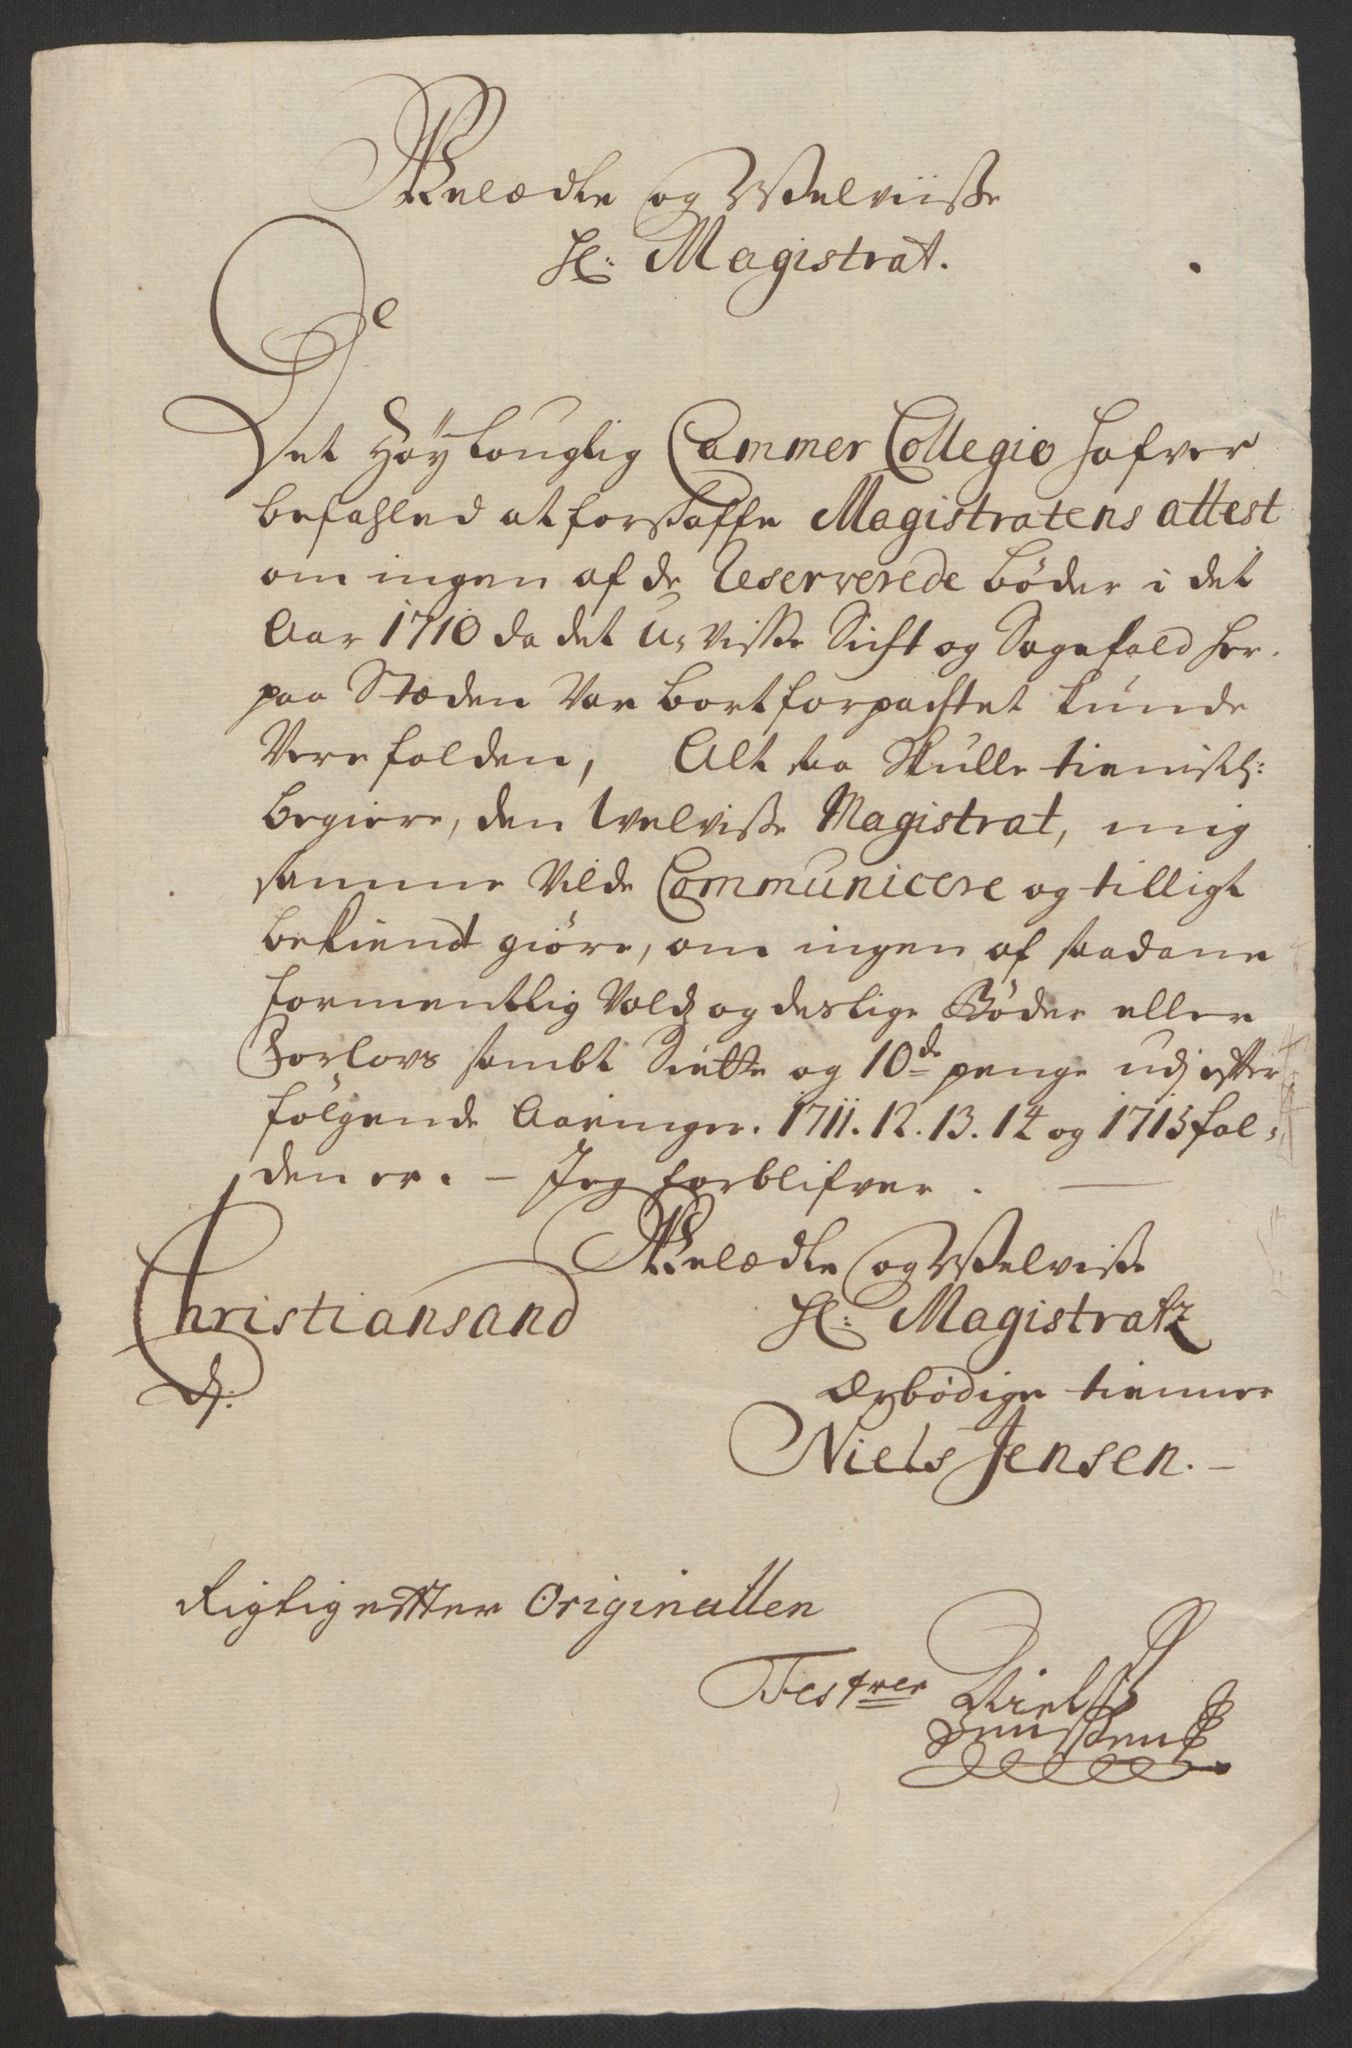 Welædle og Welviisse
H: Magistrat.
Det Höylouglig Cammer Collegio hafver
befahled at forschaffe Magistratens attest
om ingen af de Reserverede bøder i det
Aar 1710 da det u-visse Sicht og Sagefald her
paa Stæden Var bortforpachtet kunde
Vere falden, Alt saa Skulle tienistl:
begiere, den Welvisse Magistrat, mig
samme Vilde Communicere og tilligt
bekiendt giöre, om ingen af saadane
formentlig Vold og deslige Bøder eller
Forlovs sambt Siette og 10de penge udj efter
fölgende Aaringer. 1711. 12. 13. 14 og 1715 fal-
den er. - Jeg forblifver.
Welædle og Welvisse
Christiansand H: Magistratz
d:
ærbødige tienner
Niels Jensen.
Rigtig efter Originallen
Testrer Niels
Jenssen